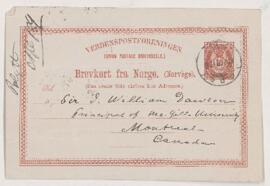 VERDENSPOSTFORENINGEN
(UNION POSTALE UNIVERSELLE.)
Brevkort fra Norge. (Norvège.)
(Paa denne Side skrives kun Adressen.)
Til
Sir J. William Dawson
Principal of Mc Gill University
Montreal
Canada